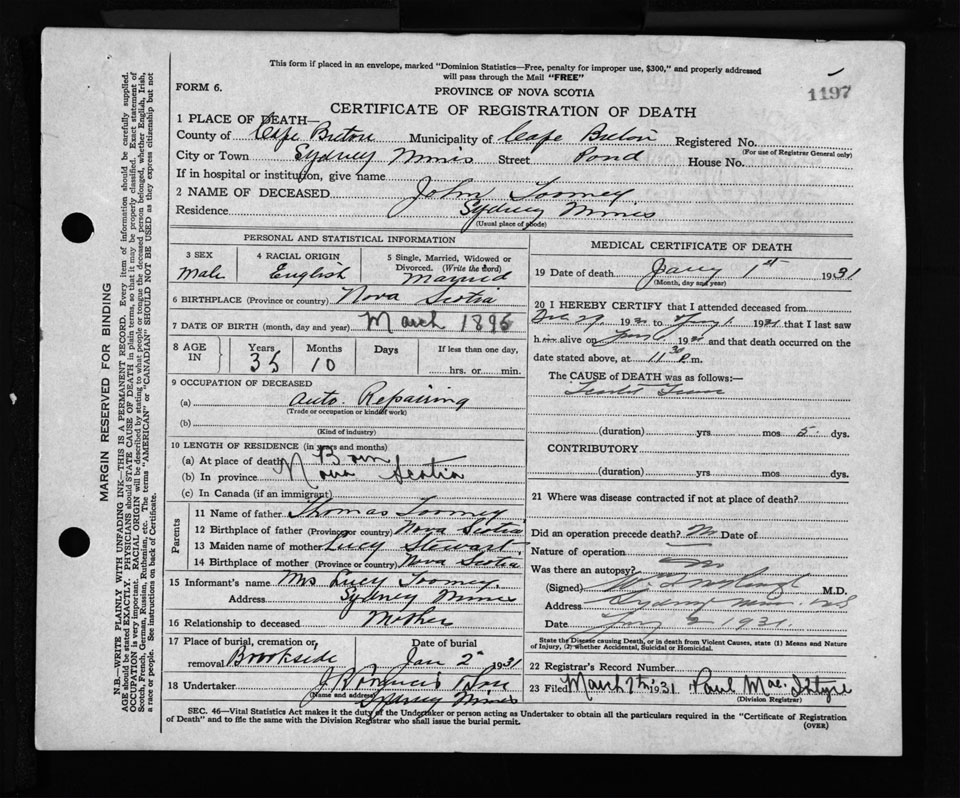 This form if placed in an envelope, marked "Dominion Statistics—Free, penalty for improper use, $300," and properly addressed
will pass through the Mail "FREE"
1197
FORM 6.
PROVINCE OF NOVA SCOTIA
CERTIFICATE OF REGISTRATION OF DEATH
1 PLACE OF DEATH—
County of Cape Breton Municipality of Cape Breton Registered No.
(For use of Registrar General only)
City or Town Sydney Mines Street Pond House No.
If in hospital or institution, give name
2 NAME OF DECEASED John Toomey
Residence Sydney Mines
(Usual place of abode)
PERSONAL AND STATISTICAL INFORMATION
3 SEX 4 RACIAL ORIGIN 5 Single, Married, Widowed or
Divorced. (Write the word)
Male English Married
6 BIRTHPLACE (Province or country) Nova Scotia
7 DATE OF BIRTH (month, day and year) March 1895
8 AGE IN Years Months Days If less than one day,
35 10 hrs. or min.
9 OCCUPATION OF DECEASED
(a) Auto. Repairing
(Trade or occupation or kind of work)
(b)
(Kind of industry)
10 LENGTH OF RESIDENCE (in years and months)
(a) At place of death Born
(b) In province Nova Scotia
(c) In Canada (if an immigrant)
Parents
11 Name of father Thomas Toomey
12 Birthplace of father (Province or country) Nova Scotia
13 Maiden name of mother Lucy Stewart
14 Birthplace of mother (Province or country) Nova Scotia
15 Informant's name Mrs Lucy Toomey.
Address Sydney Mines
16 Relationship to deceased Mother
17 Place of burial, cremation or Date of burial
removal Brookside Jan 2 1931
18 Undertaker
(Name and address) Sydney Mines
MEDICAL CERTIFICATE OF DEATH
19 Date of death Jany 1st 1931
(Month, day and year)
20 I HEREBY CERTIFY that I attended deceased from
Dec 29 19 to Jany 1. 1931 that I last saw
h alive on 19 and that death occurred on the
date stated above, at 11 30 P.m.
The CAUSE of DEATH was as follows:—
Scarlet Fever
(duration) yrs mos 5 dys.
CONTRIBUTORY
(duration) yrs mos dys.
21 Where was disease contracted if not at place of death?
Did an operation precede death? no Date of
Nature of operation
Was there an autopsy? no
(Signed) M.D.
Address Sydney Mines N.S
Date Jany 2 1931.
State the Disease causing Death, or in death from Violent Causes, state (1) Means and Nature
of Injury, (2) whether Accidental, Suicidal or Homicidal.
22 Registrar's Record Number
23 Filed March 7th 1931 Paul Mac Intyre
(Division Registrar)
SEC. 46—Vital Statistics Act makes it the duty of the Undertaker or person acting as Undertaker to obtain all the particulars required in the "Certificate of Registration
of Death" and to file the same with the Division Registrar who shall issue the burial permit.
(OVER)
MARGIN RESERVED FOR BINDING
N.B.—WRITE PLAINLY WITH UNFADING INK—THIS IS A PERMANENT RECORD. Every item of information should be carefully supplied.
AGE should be stated EXACTLY. PHYSICIANS should STATE CAUSE OF DEATH in plain terms, so that it may be properly classified. Exact statement of
OCCUPATION is very important. RACIAL ORIGIN will be described by stating to what people or tongue the deceased person belonged, whether English, Irish,
Scotch, French, German, Russian, Ruthenian, etc. The terms "AMERICAN" or "CANADIAN" SHOULD NOT BE USED as they express citizenship but not
a race or people. See instructions on back of Certificate.